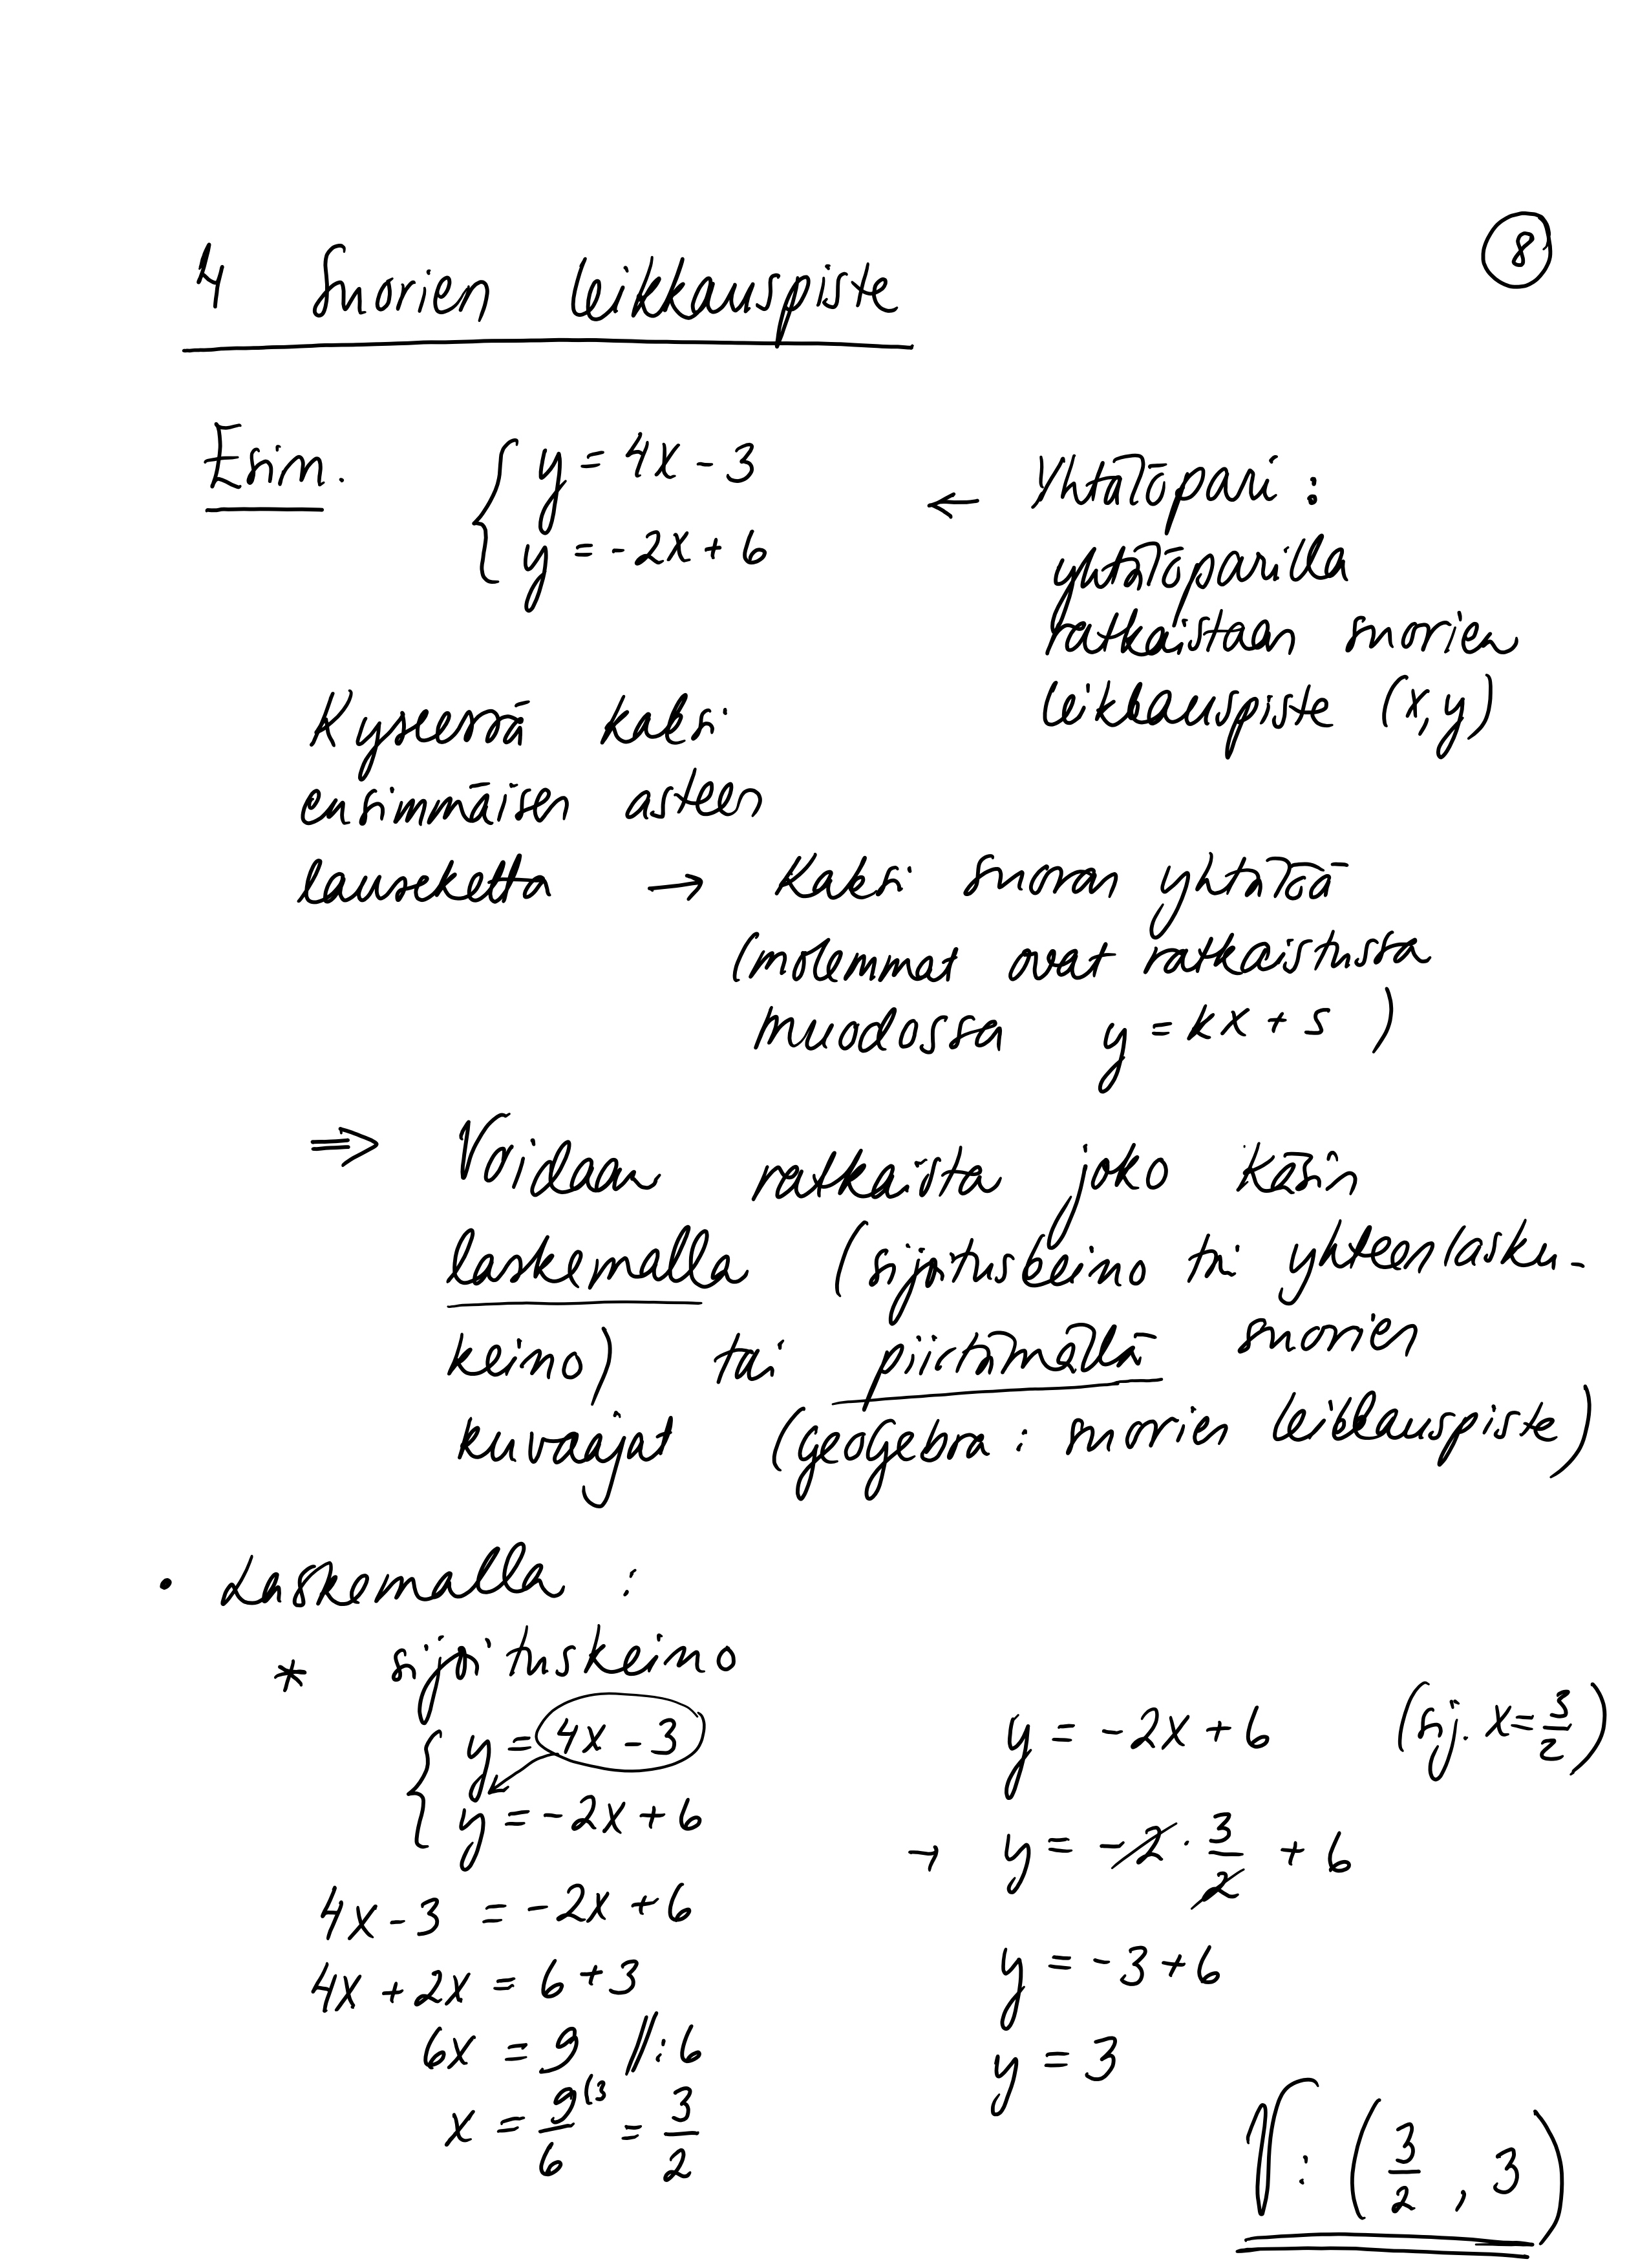 8
4 Suorien leikkauspiste
Esim.
y = 4x - 3
y = -2x + 6
← Yhtälöpari :
yhtälöparilla
ratkaistaan suorien
leikkauspiste (x,y)
Kyseessä kaksi
ensimmäisen asteen
lauseketta → Kaksi suoran yhtälöä
(molemmat ovat ratkaistussa
muodossa y = kx + s )
⇒ Voidaan ratkaista joko käsin
laskemalla (sijoituskeino tai yhteenlasku-
keino) tai piirtämällä suorien
kuvaajat (geogebra : suorien leikkauspiste)
• Laskemalla :
* sijoituskeino
y = 4x - 3
y = -2x + 6
4x - 3 = -2x + 6
4x + 2x = 6 + 3
6x = 9 //:6
x = 9/6 (3 = 3/2
y = -2x + 6 (sij. x = 3/2)
→ y = -2 · 3/2 + 6
y = -3 + 6
y = 3
V: (3/2 , 3)